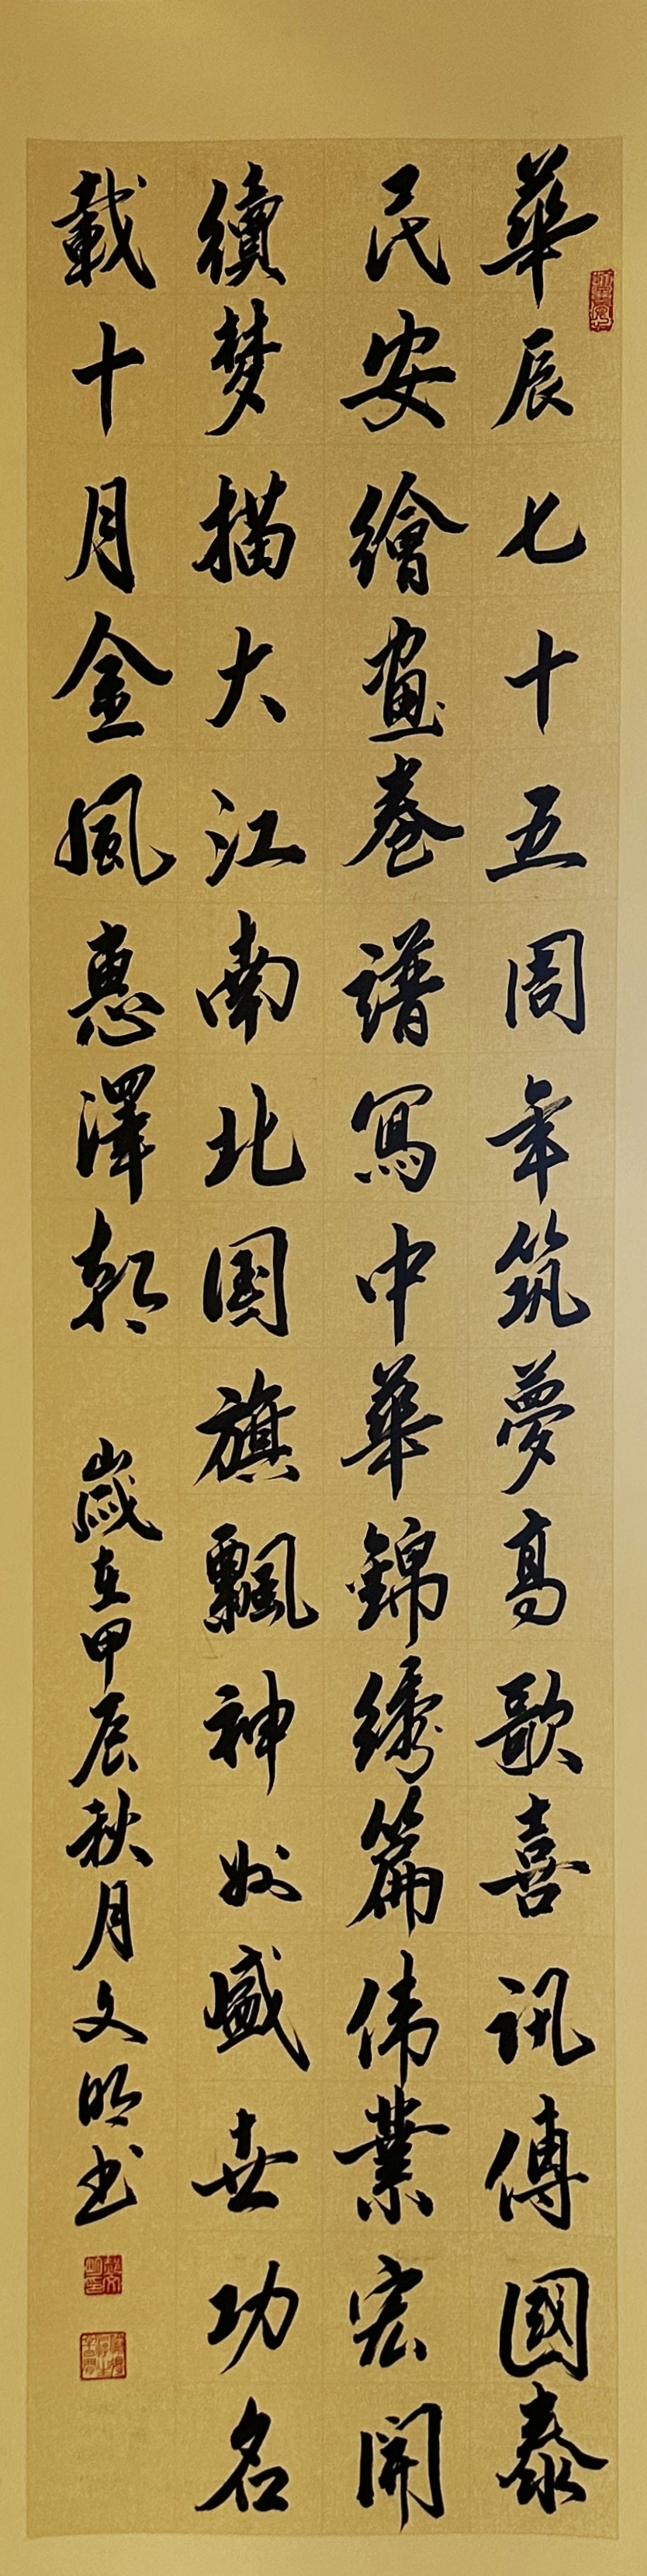 華辰七十五周年筑夢高歌喜訊傳國泰
民安繪畫卷譜寫中華錦绣篇伟業宏開
續梦描大江南北国旗飄神州盛世功名
載十月金風惠澤朝
歲在甲辰秋月文明书